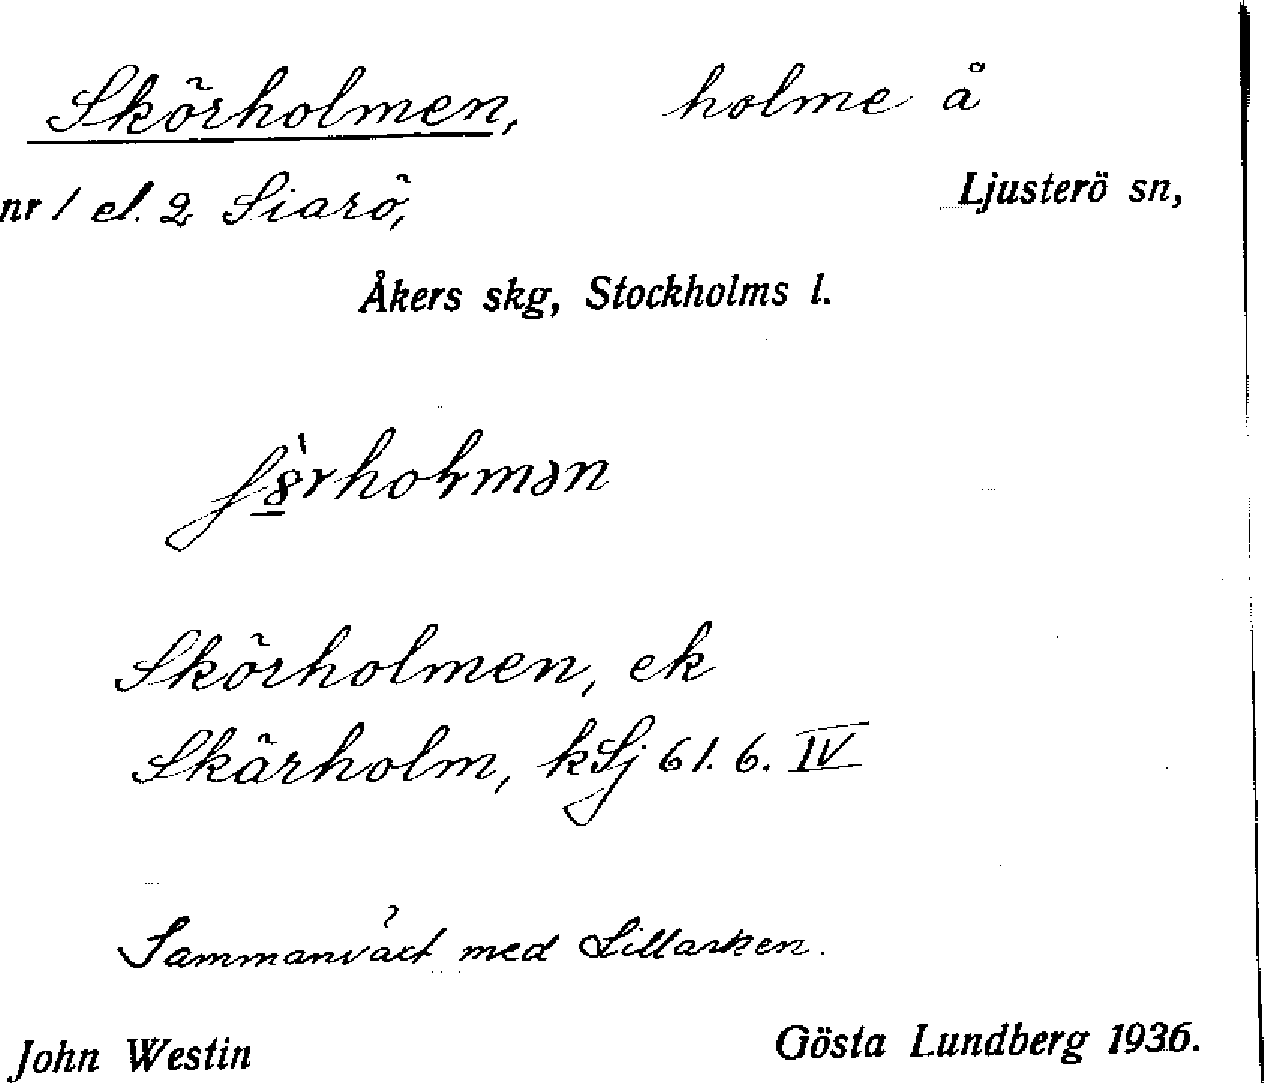 Skörholmen, holme å
nr 1 el. 2 Siarö, Ljusterö sn,
Åkers skg, Stockholms l.
Skörholmen, ek
Skärholm, kSj 61. 6. IV
Sammanväxt med Lillarken.
John Westin Gösta Lundberg 1936.